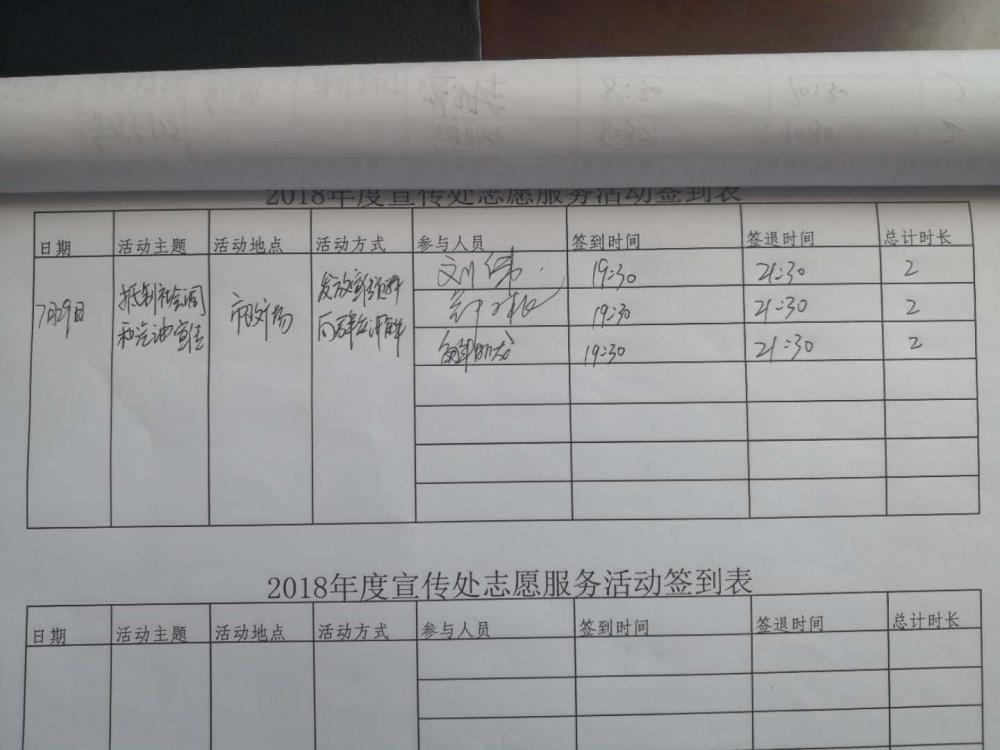 2018年度宣传处志愿服务活动签到表
日期 活动主题 活动地点 活动方式 参与人员 签到时间 签退时间 总计时长
7月29日 抵制社会调和汽油宣传 市政广场 发放宣传资料向群众讲解 刘伟 19:30 21:30 2
19:30 21:30 2
19:30 21:30 2
2018年度宣传处志愿服务活动签到表
日期 活动主题 活动地点 活动方式 参与人员 签到时间 签退时间 总计时长